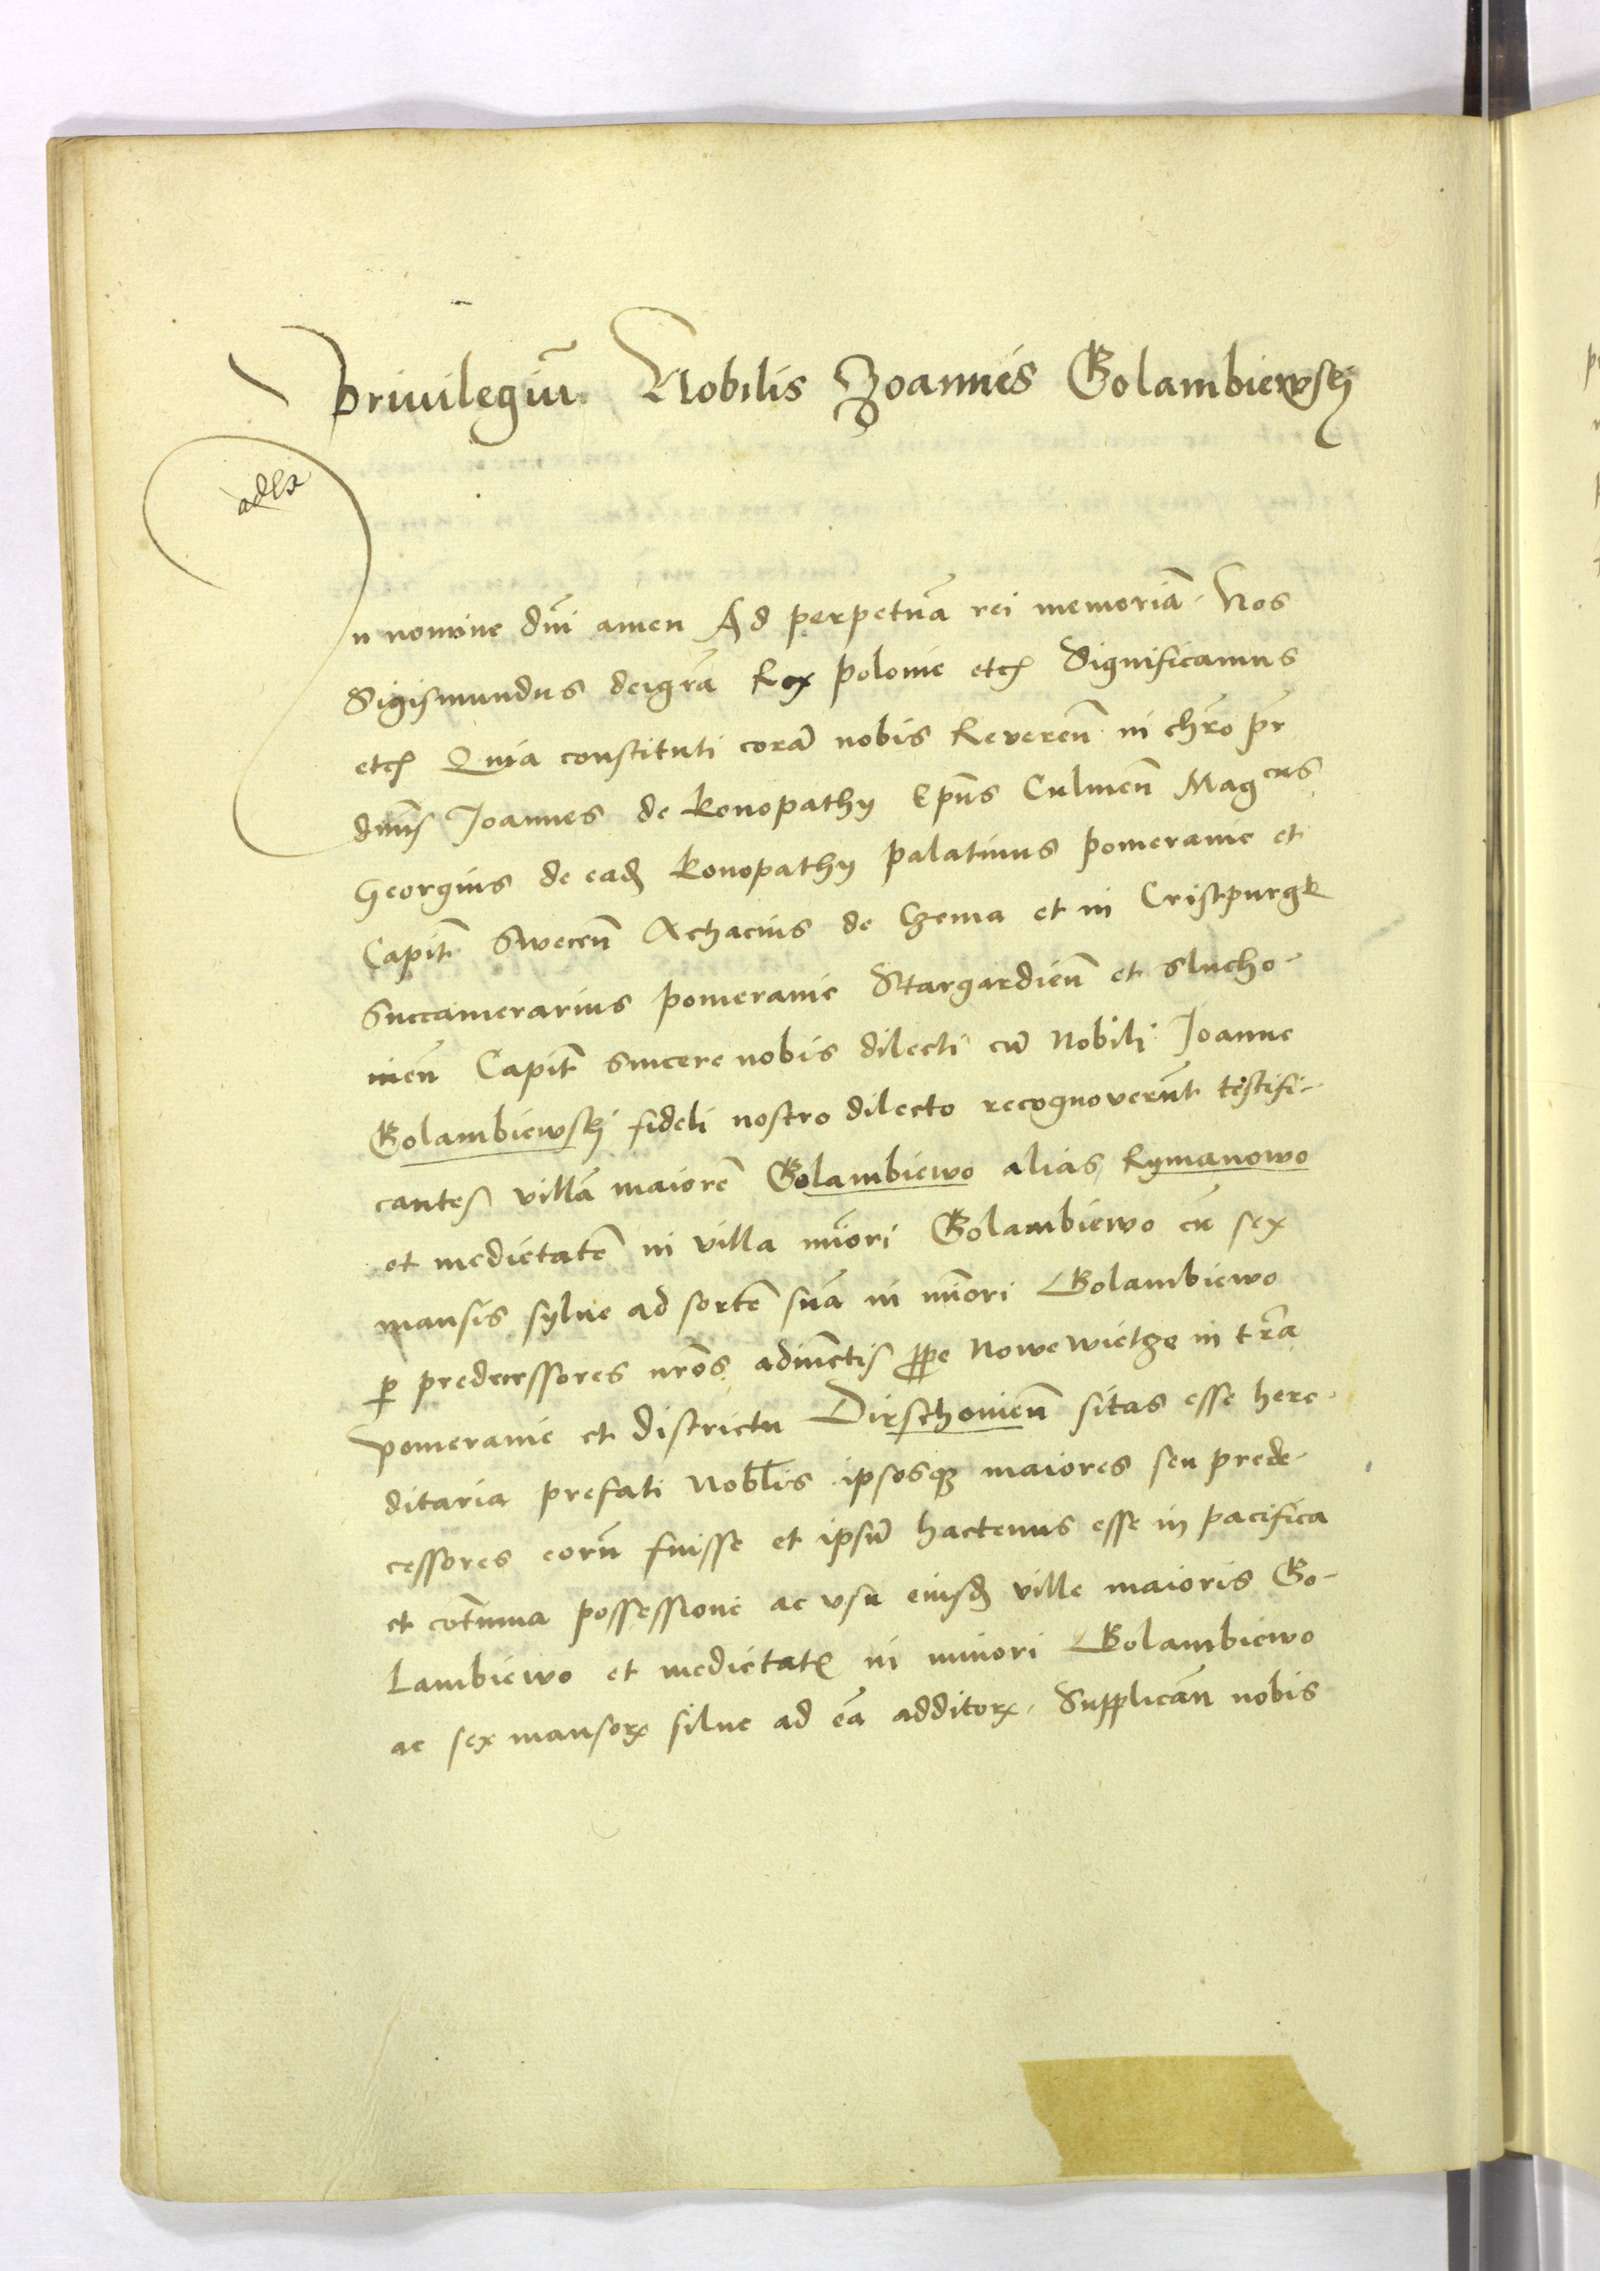 Priuilegiū Nobilis Joannis Golambiewskj
In nomine dnī amen Ad perpetuā rei memoriā. Nos
Sigismundus dei grā Rex polonie etcȝ Significamus
etcȝ Quia constituti corā nobis Reveren̄ in chrō pr̄
dnūs Joannes de Konopathy Ep̄us Culmen̄ Magcus
Georgius de eadȝ Konopathy palatinus pomeranie et
Capit̄ Swecen̄ Achacius de Czema et in Cristpurgk
Succamerarius pomeranie Stargardien̄ et slucho-
nien̄ Capit̄ sincere nobis dilecti cū Nobili Joanne
Golambiewskj fideli nostro dilecto recognoverūt testifi-
cantes villā maiorē Golambiewo alias Rymanowo
et medietatē in villa mīori Golambiewo cū sex
mansis sylue ad sortē suā in mīori Golambiewo
ꝑ predecessores nrōs adiūctis ꝓpe Nowewietze in trā
pomeranie et districtu Dirschonien̄ sitas esse here-
ditaria prefati Nobīlis ipsosqȝ maiores seu prede-
cessores eorū fuisse et ipsū hactenus esse in pacifica
et cōtinua possessione ac vsu eiusdȝ ville maioris Go-
lambiewo et medietatȝ in minori Golambiewo
ac sex mansorꝝ silue ad eā additorꝝ. Supplicān nobis